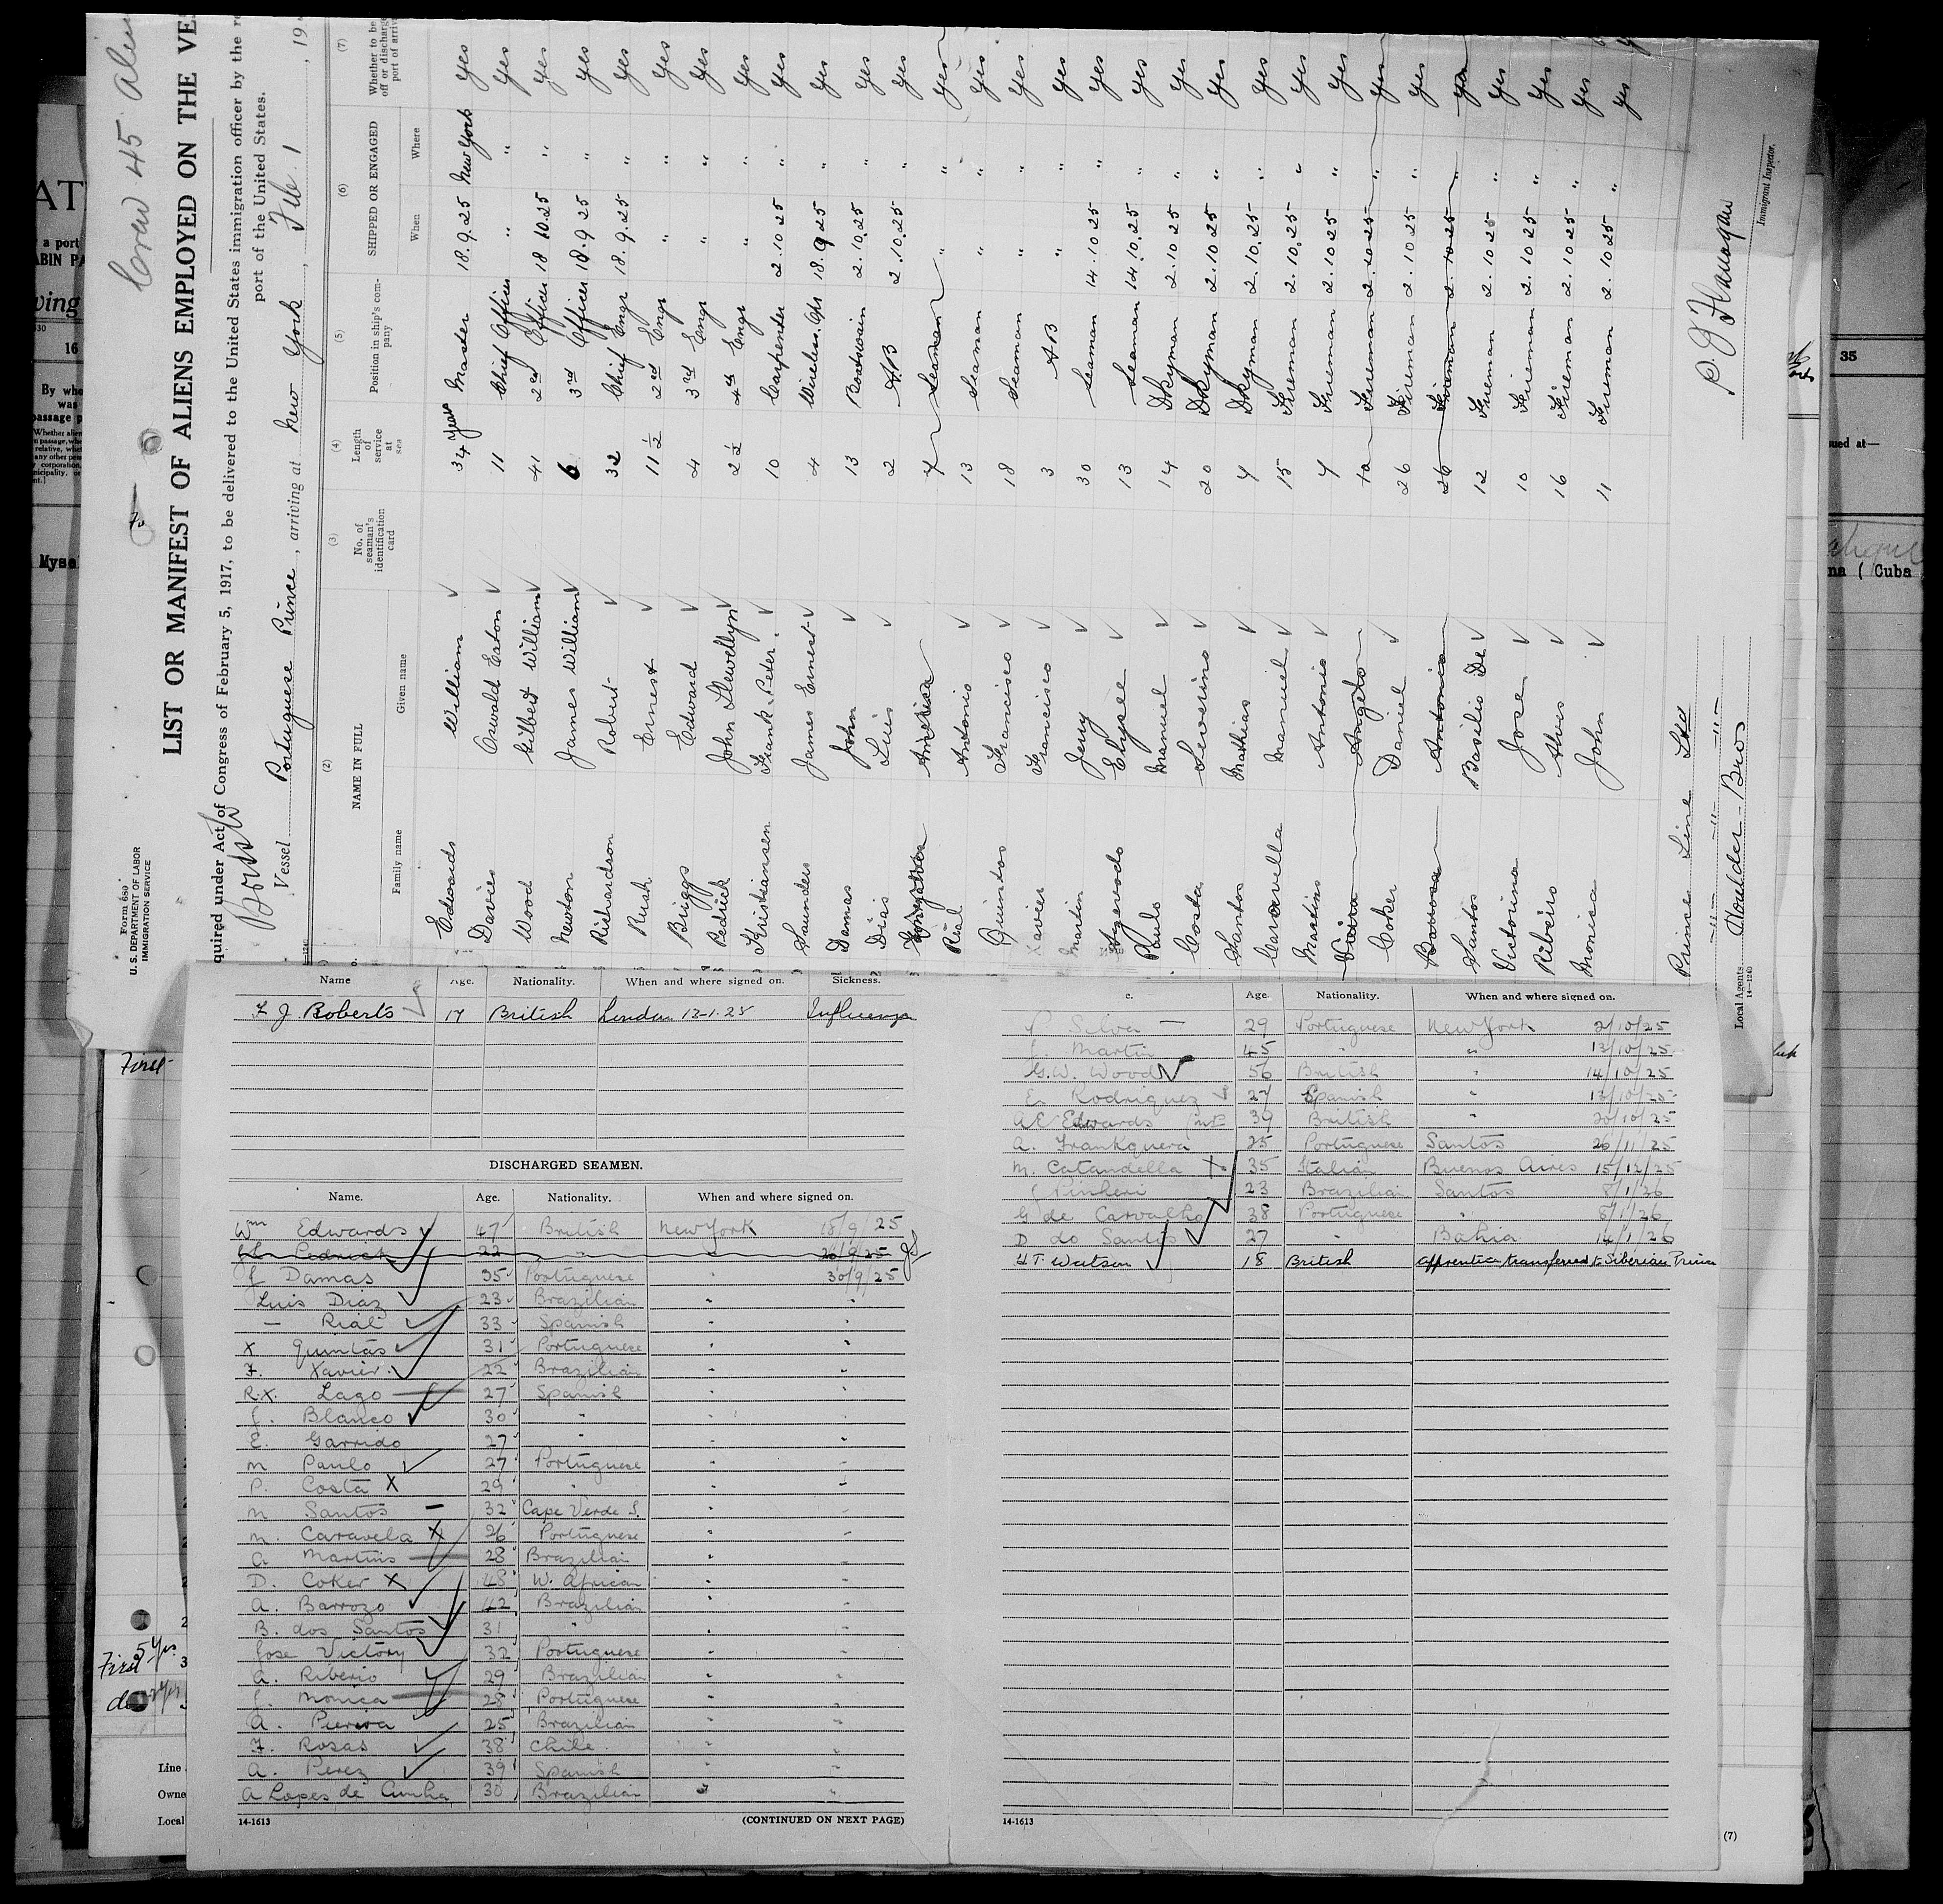 Crew 45
Form 689
U. S. DEPARTMENT OF LABOR
IMMIGRATION SERVICE
LIST OR MANIFEST OF ALIENS EMPLOYED ON THE VE
quired under Act of Congress of February 5, 1917, to be delivered to the United States immigration officer by the r
port of the United States.
Vessel Portuguese Prince, arriving at New York, Feb. 1, 19
(2) (3) (4) (5) (6) (7)
NAME IN FULL No. of seaman's identification card Length of service at sea Position in ship's company SHIPPED OR ENGAGED Whether to be off or discharge port of arriv
Family name Given name When Where
Edwards William 34 Years Master 18.9.25 New York Yes
Davies Oswald Eaton 11 Chief Officer " " Yes
Wood Gilbert William 41 2nd Officer 18 10.25 " Yes
Newton James William 6 3rd Officer 18.9 25 " Yes
Richardson Robert 32 Chief Engr 18.9.25 " Yes
Rush Ernest 11 1/2 2nd Engr " " Yes
Briggs Edward 4 3rd Engr " " Yes
Pedrick John Llewellyn 2 1/2 4th Engr " " Yes
Kristiansen Frank Peter 10 Carpenter 2.10 25 " Yes
Saunders James Ernest 4 Wireless Opr 18.9 25 " Yes
Damas John 13 Boatswain 2.10.25 " Yes
Dias Luis 2 AB 2.10.25 " Yes
7 Seaman " " Yes
Rial Antonio 13 Seaman " " Yes
Quintas Francisco 18 Seaman " " Yes
Xavier Francisco 3 AB " " Yes
Martin Jerry 30 Seaman 14.10 25 " Yes
Azevedo Elysee 13 Seaman 14.10.25 " Yes
Paulo Manuel 14 Dkyman 2.10 25 " Yes
Costa Severino 20 Dkyman 2.10 25 " Yes
Santos Mathias 7 Dkyman 2.10.25 " Yes
Caravella Manuel 15 Fireman 2.10.25 " Yes
Martins Antonio 7 Fireman 2.10 25 " Yes
Vieira Angelo 10 Fireman 2.10 25 " Yes
Coker Daniel 26 Fireman 2.10 25 " Yes
Barrosa Antonio 26 Fireman 2.10 25 " Yes
Santos Basilio De 12 Fireman 2.10 25 " Yes
Victorina Jose 10 Fireman 2.10 25 " Yes
Ribeiro Alves 16 Fireman 2.10 25 " Yes
Monica John 11 Fireman 2.10 25 " Yes
Prince Line Ltd
Local Agents Houlder Bros
14-1240
P. J. Flanagan
Immigrant Inspector.
Name Age. Nationality. When and where signed on. Sickness.
F J Roberts 17 British London 13-1-25 Influenza
DISCHARGED SEAMEN.
Name. Age. Nationality. When and where signed on.
Wm Edwards 47 British New York 18/9/25
Pedrick 22 " " 26/9/25
J Damas 35 Portuguese " 30/9/25
Luis Diaz 23 Brazilian " "
— Rial 33 Spanish " "
X Quintas 31 Portuguese " "
F. Xavier 22 Brazilian " "
R.X. Lago 27 Spanish " "
J. Blanco 30 " " "
E. Garrido 27 " " "
M Paulo 27 Portuguese " "
P. Costa X 29 " " "
M Santos — 32 Cape Verde I. " "
M. Caravela X 26 Portuguese " "
A Martins 28 Brazilian " "
D. Coker X 48 W. African " "
A. Barrozo 42 Brazilian " "
B. dos Santos 31 " " "
Jose Victory 32 Portuguese " "
A. Riberio 29 Brazilian " "
J. Monica 28 Portuguese " "
A. Pierira 25 Brazilian " "
F. Rosas 38 Chile. " "
A. Perez 39 Spanish " "
A Lopes de Cunha 30 Brazilian " "
14-1613 (CONTINUED ON NEXT PAGE)
e. Age. Nationality. When and where signed on.
Silva — 29 Portuguese New York 2/10/25
J. Martin 45 " " 13/10/25
G.W. Wood 56 British " 14/10/25
E. Rodriguez 27 Spanish " 13/10/25
A E Edwards 39 British " 20/10/25
A. Frankquera 25 Portuguese Santos 26/11/25
M. Catandella X 35 Italian Buenos Aires 15/12/25
J Pinheri 23 Brazilian Santos 8/1/26
G de Carvalho 38 Portuguese " 8/1/26
D do Santos 27 " Bahia 14/1/26
H T. Watson 18 British apprentice transferred to Siberian Prince
14-1613
(7)
AT
a port
ABIN PA
ving
16
By who
was
passage p
Myse
35
ued at—
na ( Cuba
First
5 Yrs.
First
do
Line
Owne
Local